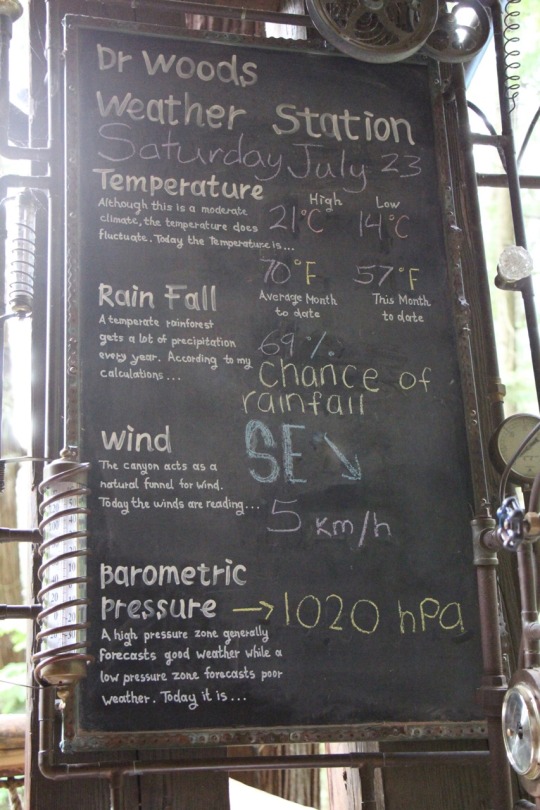 Dr Woods
Weather Station
Saturday July 23
Temperature
High Low
Although this is a moderate
climate, the temperature does
fluctuate. Today the Temperature is...
21°C 14°C
70°F 57°F
Rain Fall
Average Month
to date
This Month
to date
A temperate rainforest
gets a lot of precipitation
every year. According to my
calculations...
69%
Chance of
rainfall
Wind
The canyon acts as a
natural funnel for wind.
Today the winds are reading...
SE ↘
5 km/h
Barometric
Pressure → 1020 hPa
A high pressure zone generally
forecasts good weather while a
low pressure zone forecasts poor
weather. Today it is...